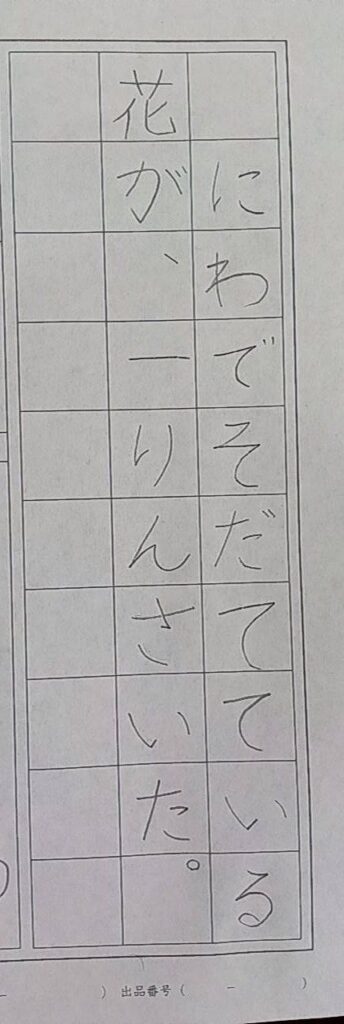 にわでそだてている
花が、一りんさいた。
) 出品番号 ( － )